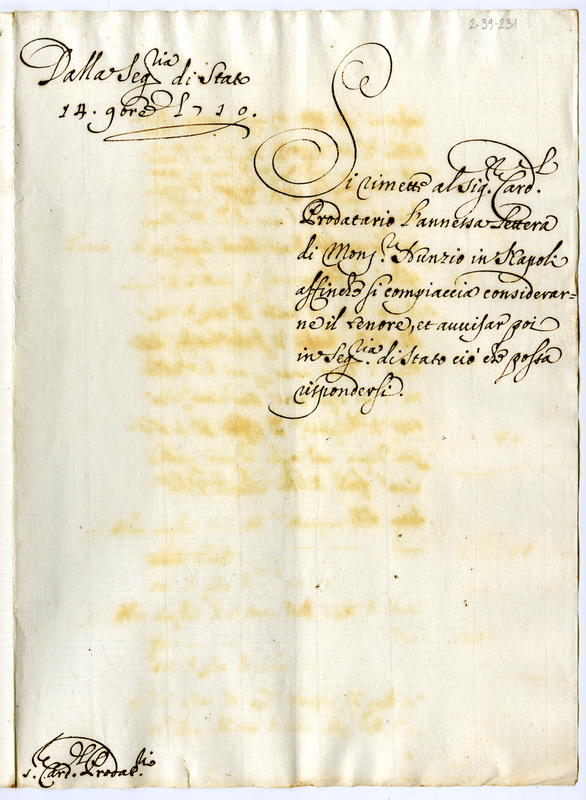 2-39-231
Dalla Seg.ria di Stato
14. 9bre 1710.
Si rimette al Sig.r Card.l
Prodatario l'annessa lettera
di Mons.r Nunzio in Napoli
affinche si compiaccia considerar=
ne il tenore, et avvisar poi
in Seg.ria di Stato ciò che possa
rispondersi.
s.r Card.l Prodat.rio